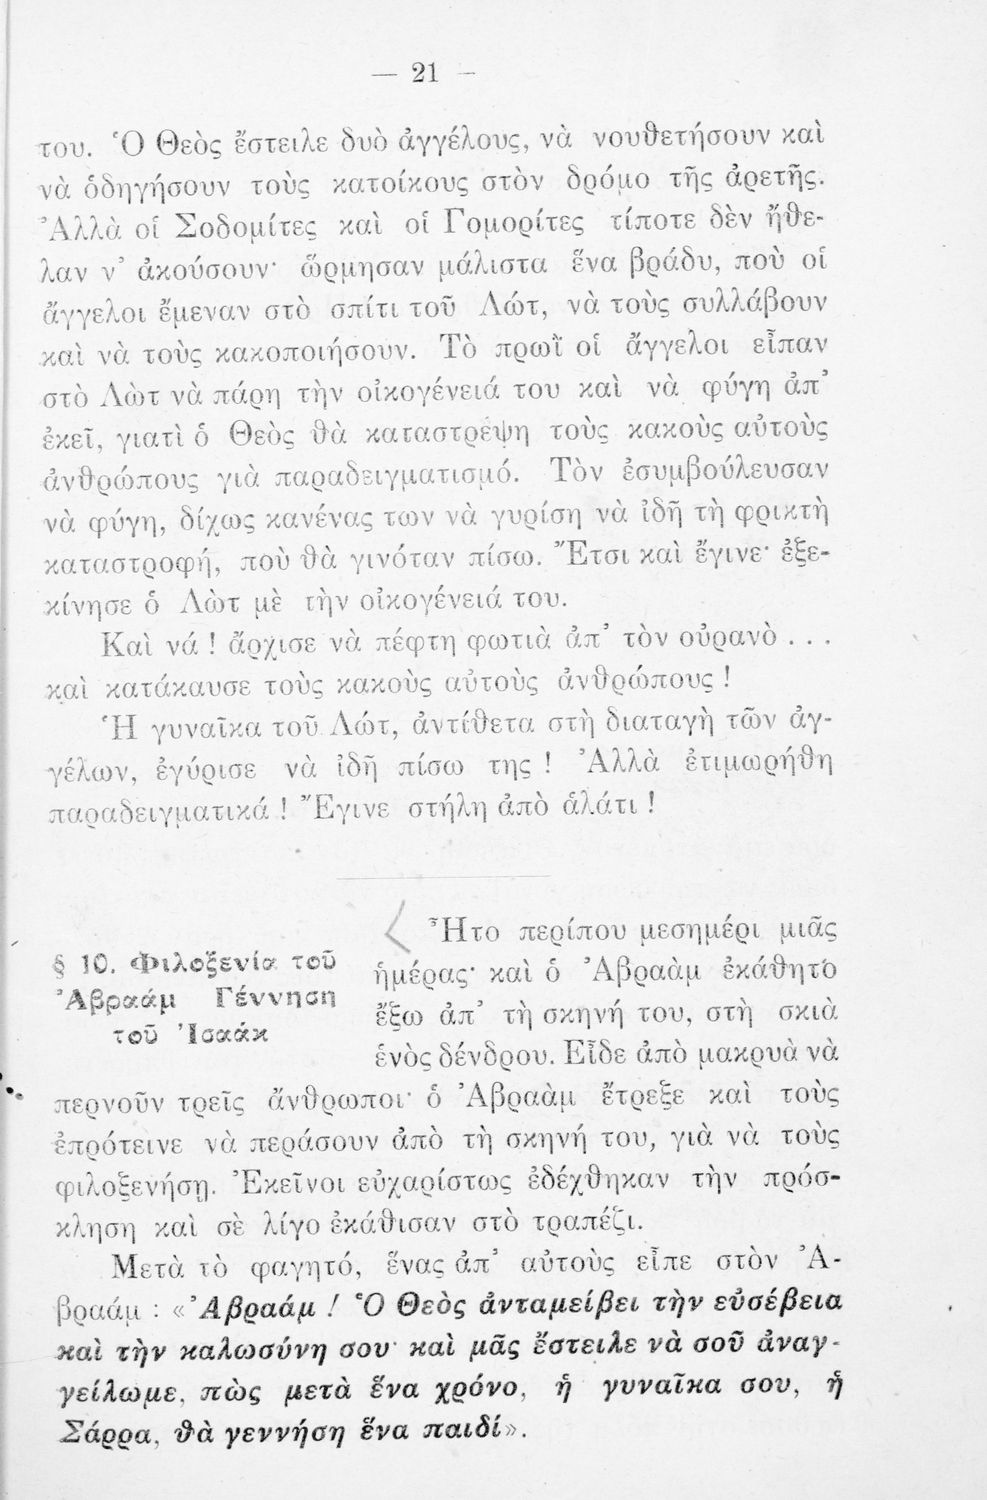 — 21 —
του. Ὁ Θεὸς ἔστειλε δυὸ ἀγγέλους, νὰ νουθετήσουν καὶ
νὰ ὁδηγήσουν τοὺς κατοίκους στὸν δρόμο τῆς ἀρετῆς.
Ἀλλὰ οἱ Σοδομίτες καὶ οἱ Γομορίτες τίποτε δὲν ἤθε-
λαν ν’ ἀκούσουν· ὥρμησαν μάλιστα ἕνα βράδυ, ποὺ οἱ
ἄγγελοι ἔμεναν στὸ σπίτι τοῦ Λώτ, νὰ τοὺς συλλάβουν
καὶ νὰ τοὺς κακοποιήσουν. Τὸ πρωῒ οἱ ἄγγελοι εἶπαν
στὸ Λὼτ νὰ πάρη τὴν οἰκογένειά του καὶ νὰ φύγη ἀπ’
ἐκεῖ, γιατὶ ὁ Θεὸς θὰ καταστρέψη τοὺς κακοὺς αὐτοὺς
ἀνθρώπους γιὰ παραδειγματισμό. Τὸν ἐσυμβούλευσαν
νὰ φύγη, δίχως κανένας των νὰ γυρίση νὰ ἰδῆ τὴ φρικτὴ
καταστροφή, ποὺ θὰ γινόταν πίσω. Ἔτσι καὶ ἔγινε· ἐξε-
κίνησε ὁ Λὼτ μὲ τὴν οἰκογένειά του.
Καὶ νά ! ἄρχισε νὰ πέφτη φωτιὰ ἀπ’ τὸν οὐρανὸ . . .
καὶ κατάκαυσε τοὺς κακοὺς αὐτοὺς ἀνθρώπους !
Ἡ γυναῖκα τοῦ Λώτ, ἀντίθετα στὴ διαταγὴ τῶν ἀγ-
γέλων, ἐγύρισε νὰ ἰδῆ πίσω της ! Ἀλλὰ ἐτιμωρήθη
παραδειγματικά ! Ἔγινε στήλη ἀπὸ ἁλάτι !
§ 10. Φιλοξενία τοῦ
Ἀβραάμ Γέννηση
τοῦ Ἰσαάκ
Ἦτο περίπου μεσημέρι μιᾶς
ἡμέρας· καὶ ὁ Ἀβραὰμ ἐκάθητο
ἔξω ἀπ’ τὴ σκηνή του, στὴ σκιὰ
ἑνὸς δένδρου. Εἶδε ἀπὸ μακρυὰ νὰ
περνοῦν τρεῖς ἄνθρωποι· ὁ Ἀβραὰμ ἔτρεξε καὶ τοὺς
ἐπρότεινε νὰ περάσουν ἀπὸ τὴ σκηνή του, γιὰ νὰ τοὺς
φιλοξενήσῃ. Ἐκεῖνοι εὐχαρίστως ἐδέχθηκαν τὴν πρόσ-
κληση καὶ σὲ λίγο ἐκάθισαν στὸ τραπέζι.
Μετὰ τὸ φαγητό, ἕνας ἀπ’ αὐτοὺς εἶπε στὸν Ἀ-
βραάμ : «Ἀβραάμ ! Ὁ Θεὸς ἀνταμείβει τὴν εὐσέβεια
καὶ τὴν καλωσύνη σου· καὶ μᾶς ἔστειλε νὰ σοῦ ἀναγ-
γείλωμε, πὼς μετὰ ἕνα χρόνο, ἡ γυναῖκα σου, ἡ
Σάρρα, θὰ γεννήση ἕνα παιδί».